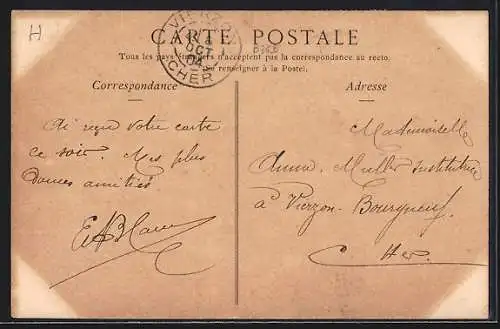 H
VIERZON
OCT
04
CHER
CARTE POSTALE
Tous les pays étrangers n'acceptent pas la correspondance au recto.
se renseigner à la Poste.
Correspondance
Adresse
Ai reçu votre carte
ce soir. Mes plus
douces amitiés
Mademoiselle
Anna Muller institutrice
à Vierzon-Bourgneuf.
Cher.